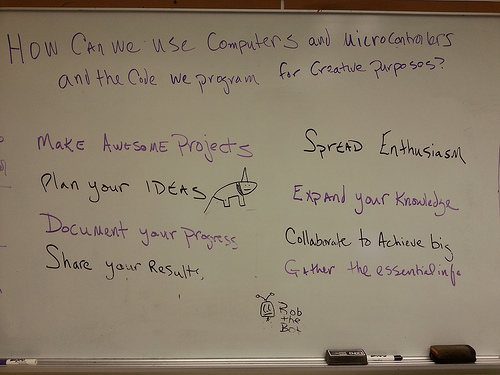 How Can we use Computers and Microcontrollers
and the Code we program for Creative Purposes?
Make Awesome Projects
Plan your IDEAS
Document your progress
Share your Results,
Spread Enthusiasm
Expand your Knowledge
Collaborate to Achieve big
Gather the essential info
Rob
the
Bot